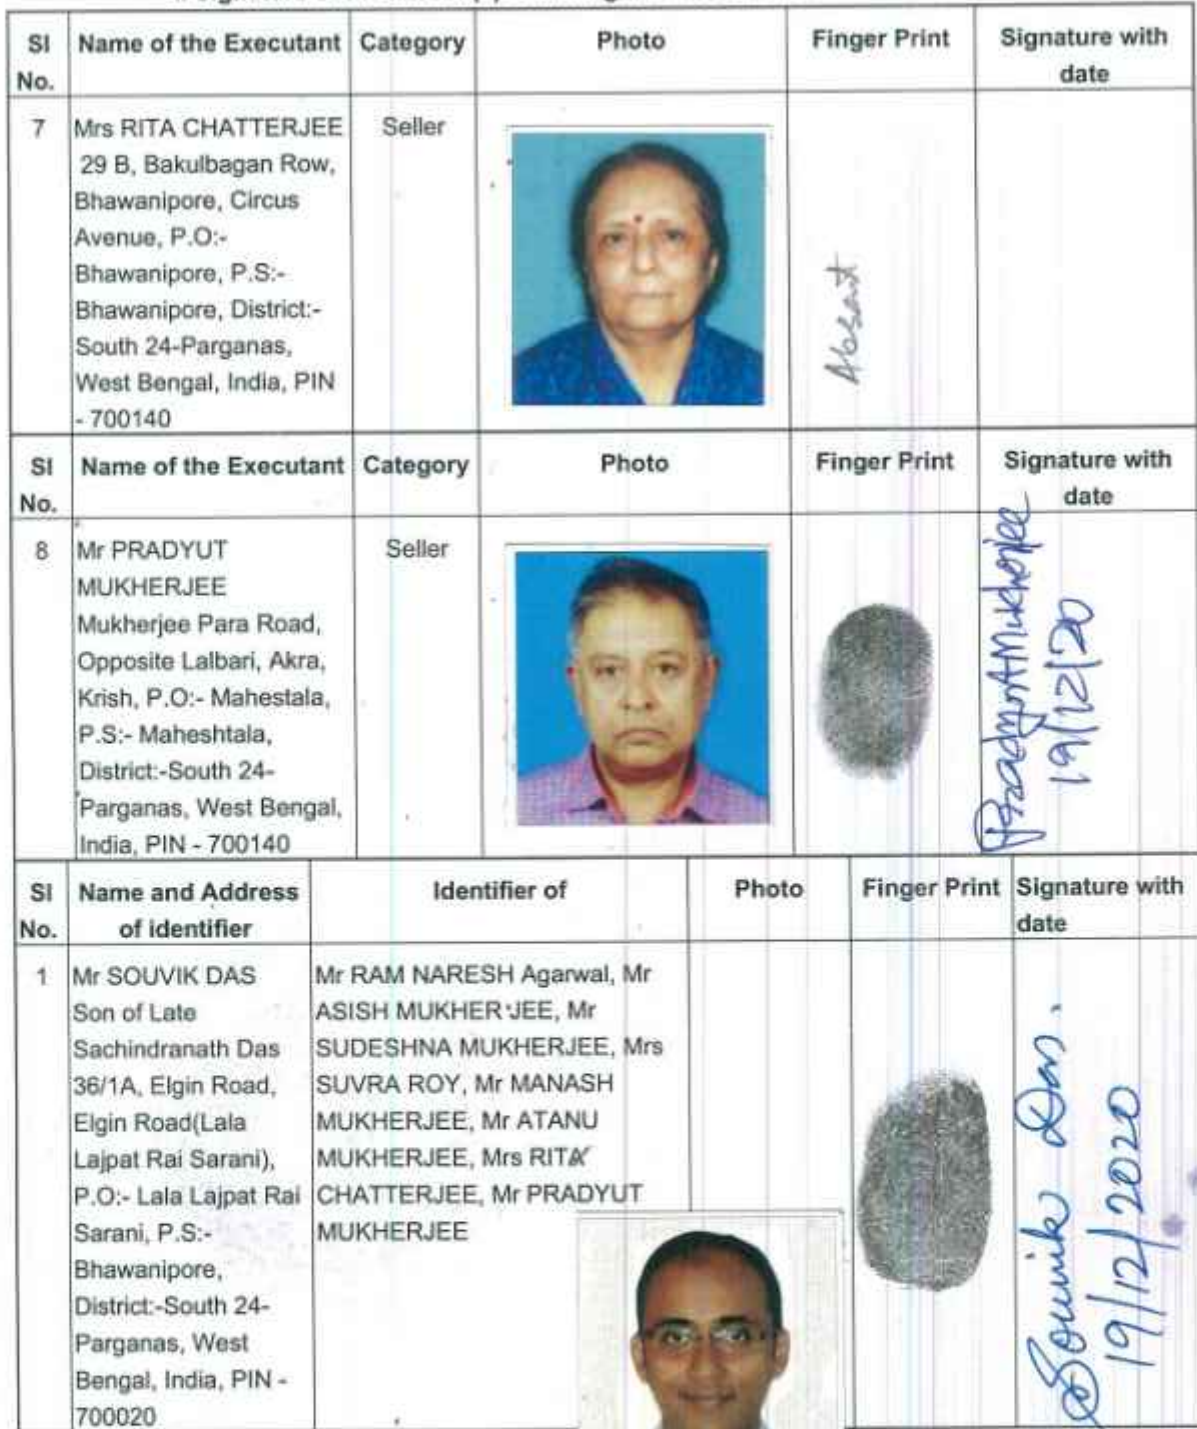 Sl No.
Name of the Executant
Category
Photo
Finger Print
Signature with date
7
Mrs RITA CHATTERJEE
29 B, Bakulbagan Row,
Bhawanipore, Circus
Avenue, P.O:-
Bhawanipore, P.S:-
Bhawanipore, District:-
South 24-Parganas,
West Bengal, India, PIN
- 700140
Seller
Absent
Sl No.
Name of the Executant
Category
Photo
Finger Print
Signature with date
8
Mr PRADYUT
MUKHERJEE
Mukherjee Para Road,
Opposite Lalbari, Akra,
Krish, P.O:- Mahestala,
P.S:- Maheshtala,
District:-South 24-
Parganas, West Bengal,
India, PIN - 700140
Seller
Pradyut Mukherjee
19/12/20
Sl No.
Name and Address
of identifier
Identifier of
Photo
Finger Print
Signature with
date
1
Mr SOUVIK DAS
Son of Late
Sachindranath Das
36/1A, Elgin Road,
Elgin Road(Lala
Lajpat Rai Sarani),
P.O:- Lala Lajpat Rai
Sarani, P.S:-
Bhawanipore,
District:-South 24-
Parganas, West
Bengal, India, PIN -
700020
Mr RAM NARESH Agarwal, Mr
ASISH MUKHERJEE, Mr
SUDESHNA MUKHERJEE, Mrs
SUVRA ROY, Mr MANASH
MUKHERJEE, Mr ATANU
MUKHERJEE, Mrs RITA
CHATTERJEE, Mr PRADYUT
MUKHERJEE
Souvik Das.
19/12/2020